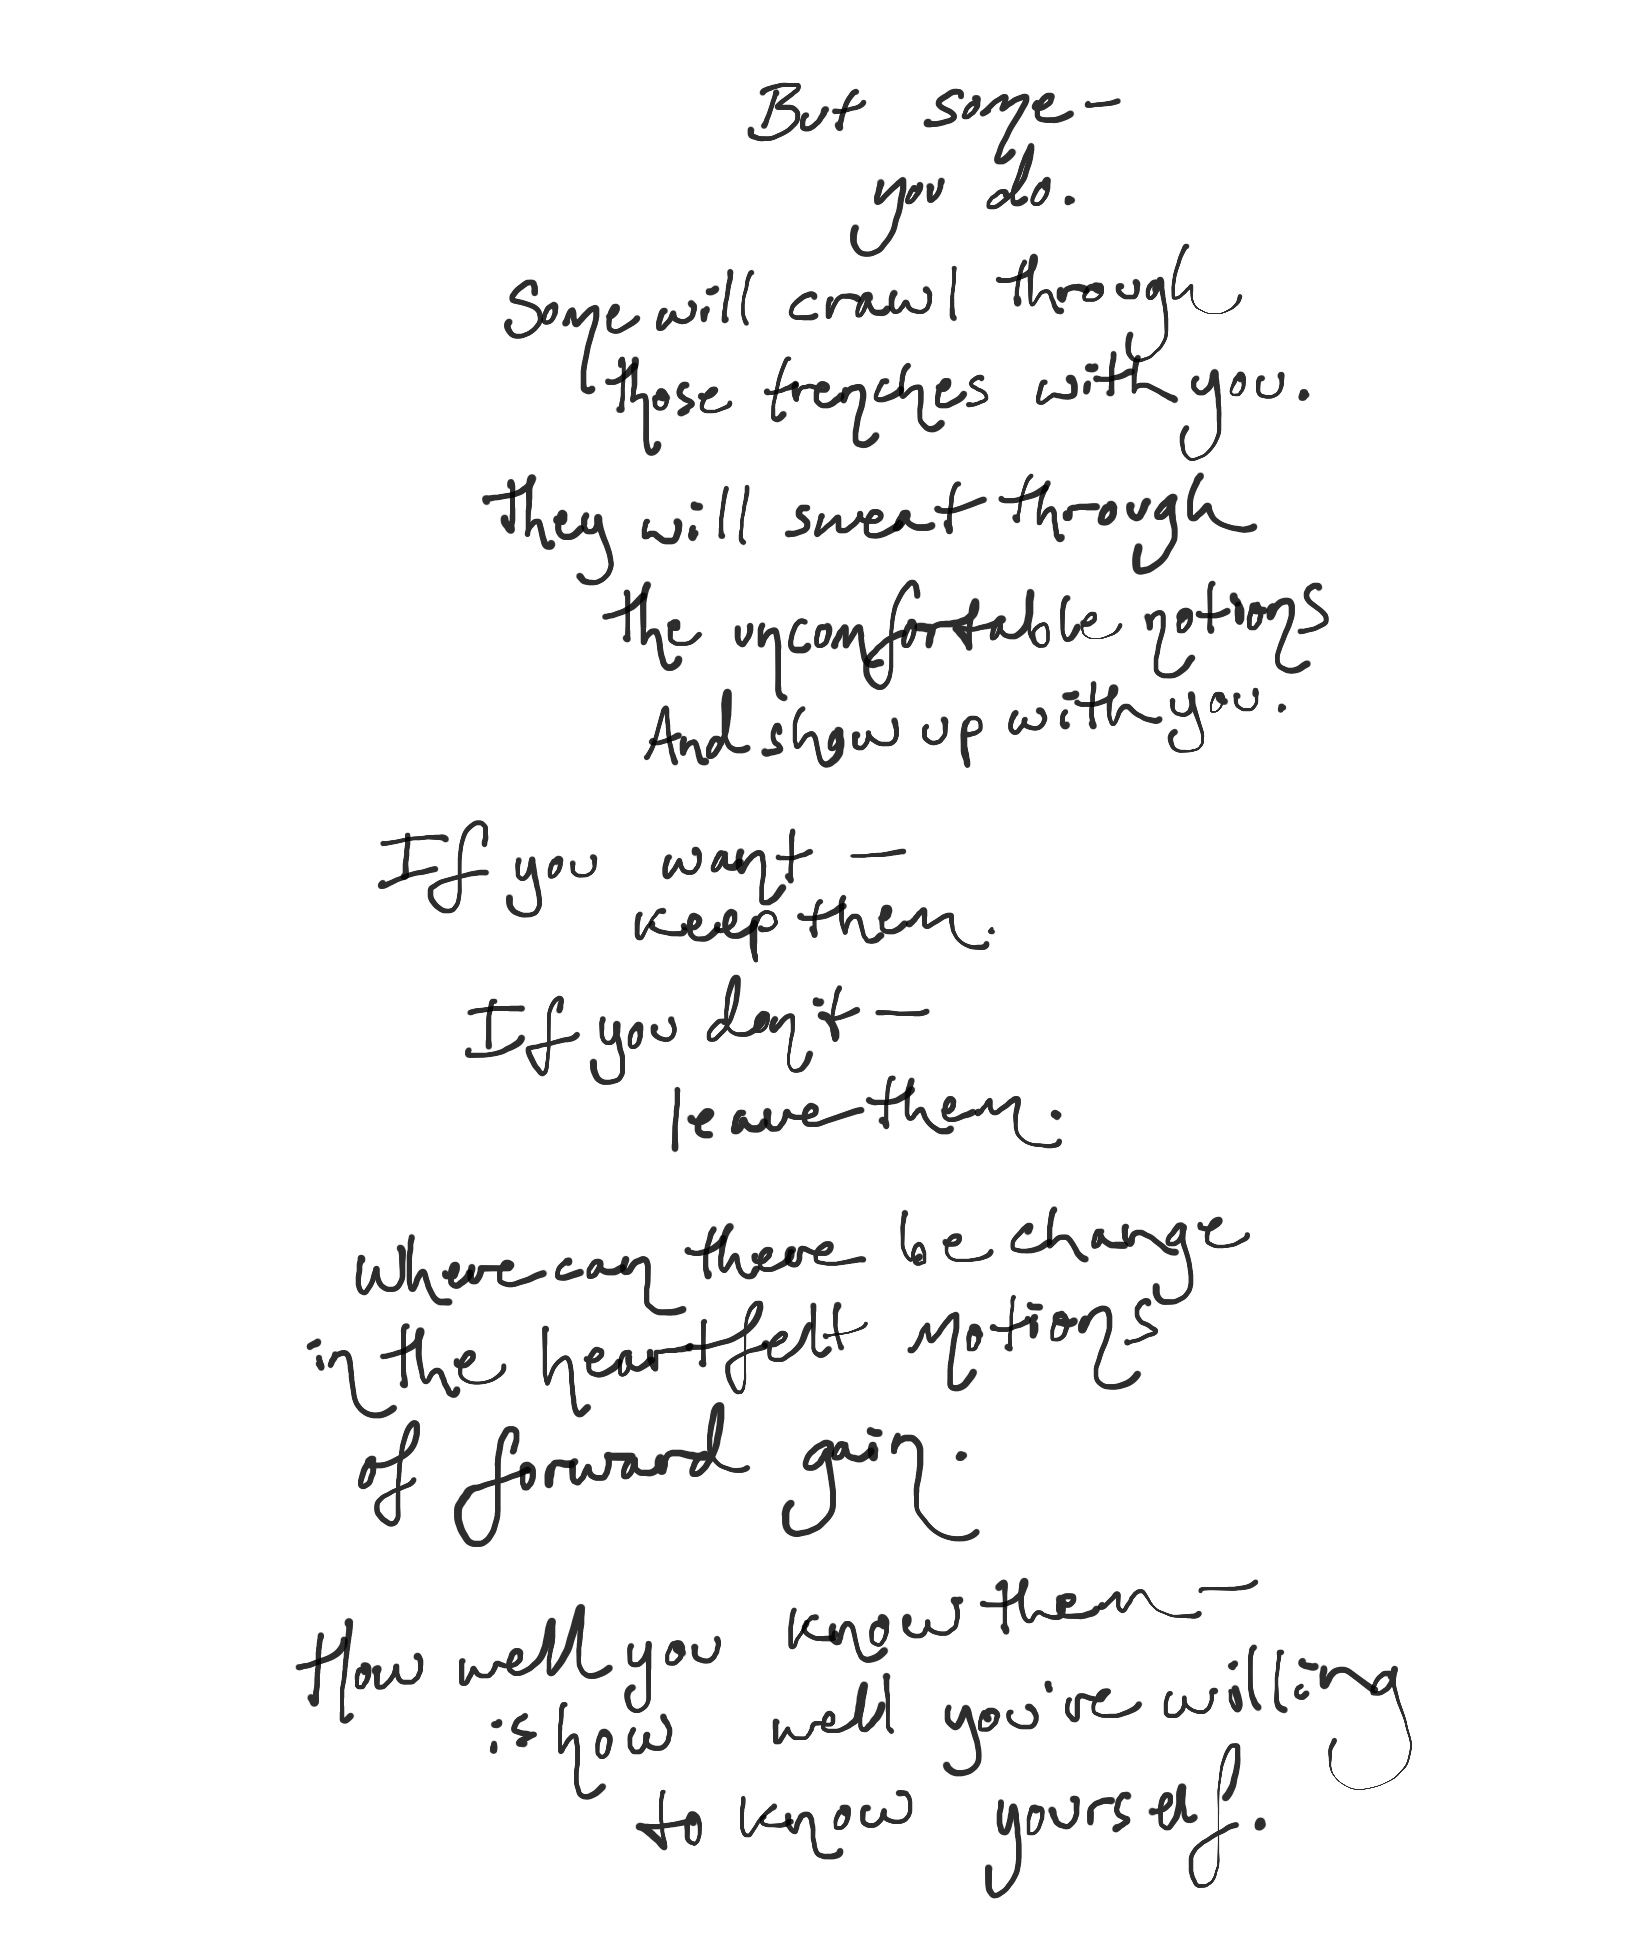 But some—
you do.
Some will crawl through
those trenches with you.
They will sweat through
the uncomfortable notions
And show up with you.
If you want—
keep them.
If you don't—
leave them.
Where can there be change
in the heartfelt motions
of forward gain.
How well you know them—
is how well you're willing
to know yourself.